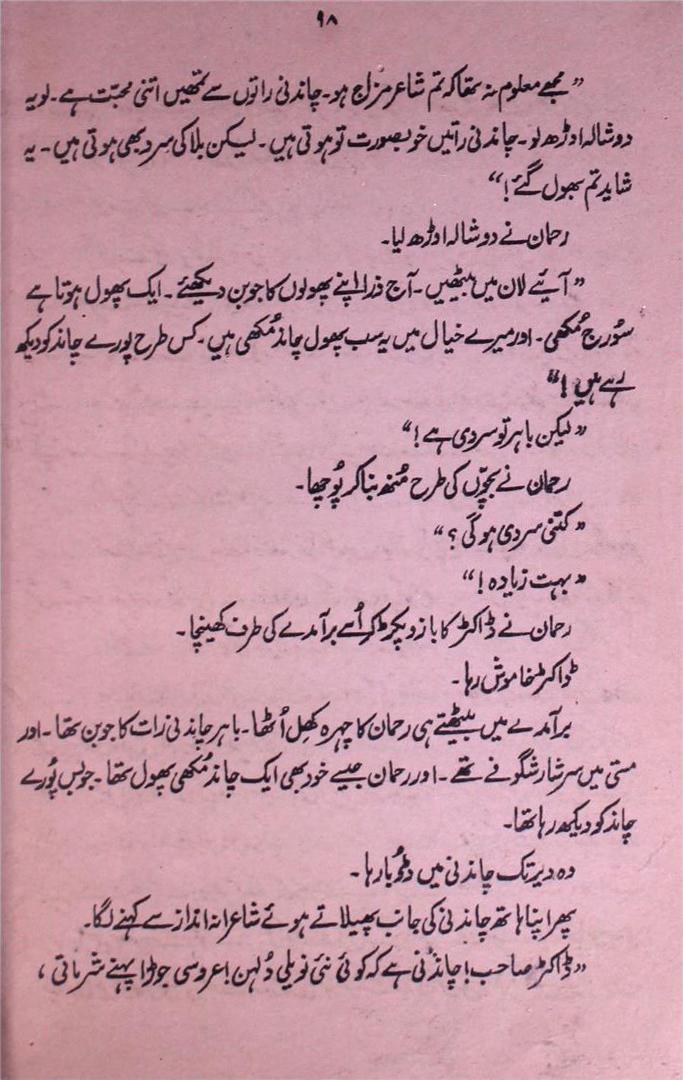 ۹۸
”مجھے معلوم نہ تھا کہ تم شاعر مزاج ہو۔ چاندنی راتوں سے تمھیں اتنی محبّت ہے۔ لو یہ
دوشالہ اوڑھ لو۔ چاندنی راتیں خوبصورت تو ہوتی ہیں۔ لیکن بلا کی سرد بھی ہوتی ہیں۔ یہ
شاید تم بھول گئے!“
رحمان نے دوشالہ اوڑھ لیا۔
”آئیے لان میں بیٹھیں۔ آج ذرا اپنے پھولوں کا جوبن دیکھئے۔ ایک پھول ہوتا ہے
سُورج مُکھی۔ اور میرے خیال میں یہ سب پھول چاند مُکھی ہیں۔ کس طرح پورے چاند کو دیکھ
رہے ہیں!“
”لیکن باہر تو سردی ہے!“
رحمان نے بچّوں کی طرح مُنھ بنا کر پُوچھا۔
”کتنی سردی ہوگی؟“
”بہت زیادہ!“
رحمان نے ڈاکٹر کا بازو پکڑ کر اُسے برآمدے کی طرف کھینچا۔
ڈاکٹر خاموش رہا۔
برآمدے میں بیٹھتے ہی رحمان کا چہرہ کھِل اُٹھا۔ باہر چاندنی رات کا جوبن تھا۔ اور
مستی میں سرشار شگوفے تھے۔ اور رحمان جیسے خود بھی ایک چاند مُکھی پھول تھا۔ جو بس پُورے
چاند کو دیکھ رہا تھا۔
وہ دیر تک چاندنی میں ڈُوبا رہا۔
پھر اپنا ہاتھ چاندنی کی جانب پھیلاتے ہوئے شاعرانہ انداز سے کہنے لگا۔
”ڈاکٹر صاحب! چاندنی ہے کہ کوئی نئی نویلی دُلہن! عروسی جوڑا پہنے شرماتی ،